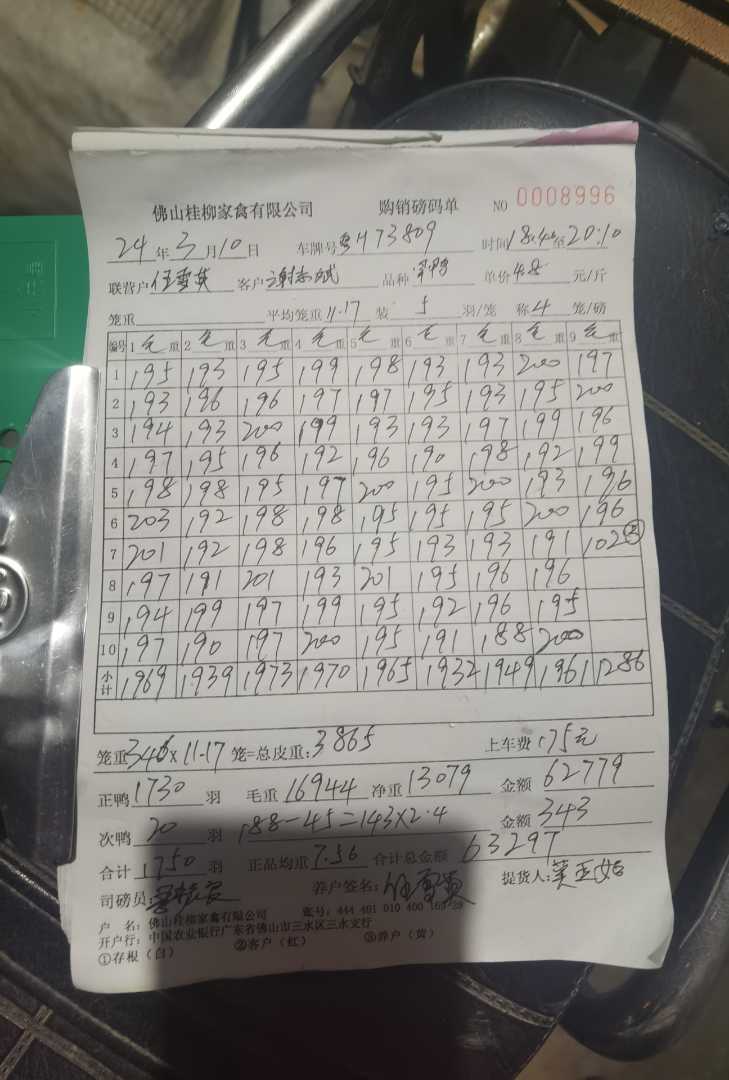 佛山桂柳家禽有限公司 购销磅码单 NO 0008996
24年3月10日 车牌号 H73809 时间18:40至20:10
联营户 伍雪英 客户 谢志斌 品种 单价4.8元/斤
笼重 平均笼重11.17 装5羽/笼 称4笼/磅
编号 1毛重 2毛重 3毛重 4毛重 5毛重 6毛重 7毛重 8毛重 9毛重
1 195 193 195 199 198 193 193 200 197
2 193 196 196 197 197 195 193 195 200
3 194 193 200 199 193 193 197 199 196
4 197 195 196 192 196 190 198 192 199
5 198 198 195 197 200 195 200 193 196
6 203 192 198 198 195 195 195 200 196
7 201 192 198 196 195 193 193 191 102
8 197 191 201 193 201 195 196 196
9 194 199 197 199 195 192 196 195
10 197 190 197 200 195 191 188 200
小计 1969 1939 1973 1970 1965 1932 1949 1961 1286
笼重346×11.17笼=总皮重:3865 上车费:175元
正鸭1730羽 毛重16944 净重13079 金额62779
次鸭20羽 188-45=143×2.4 金额343
合计1750羽 正品均重7.56 合计总金额63297
司磅员: 养户签名: 提货人:
户 名:佛山桂柳家禽有限公司 账号:444 401 010 400
开户行:中国农业银行广东省佛山市三水区三水支行
①存根(白) ②客户(红) ③养户(黄)